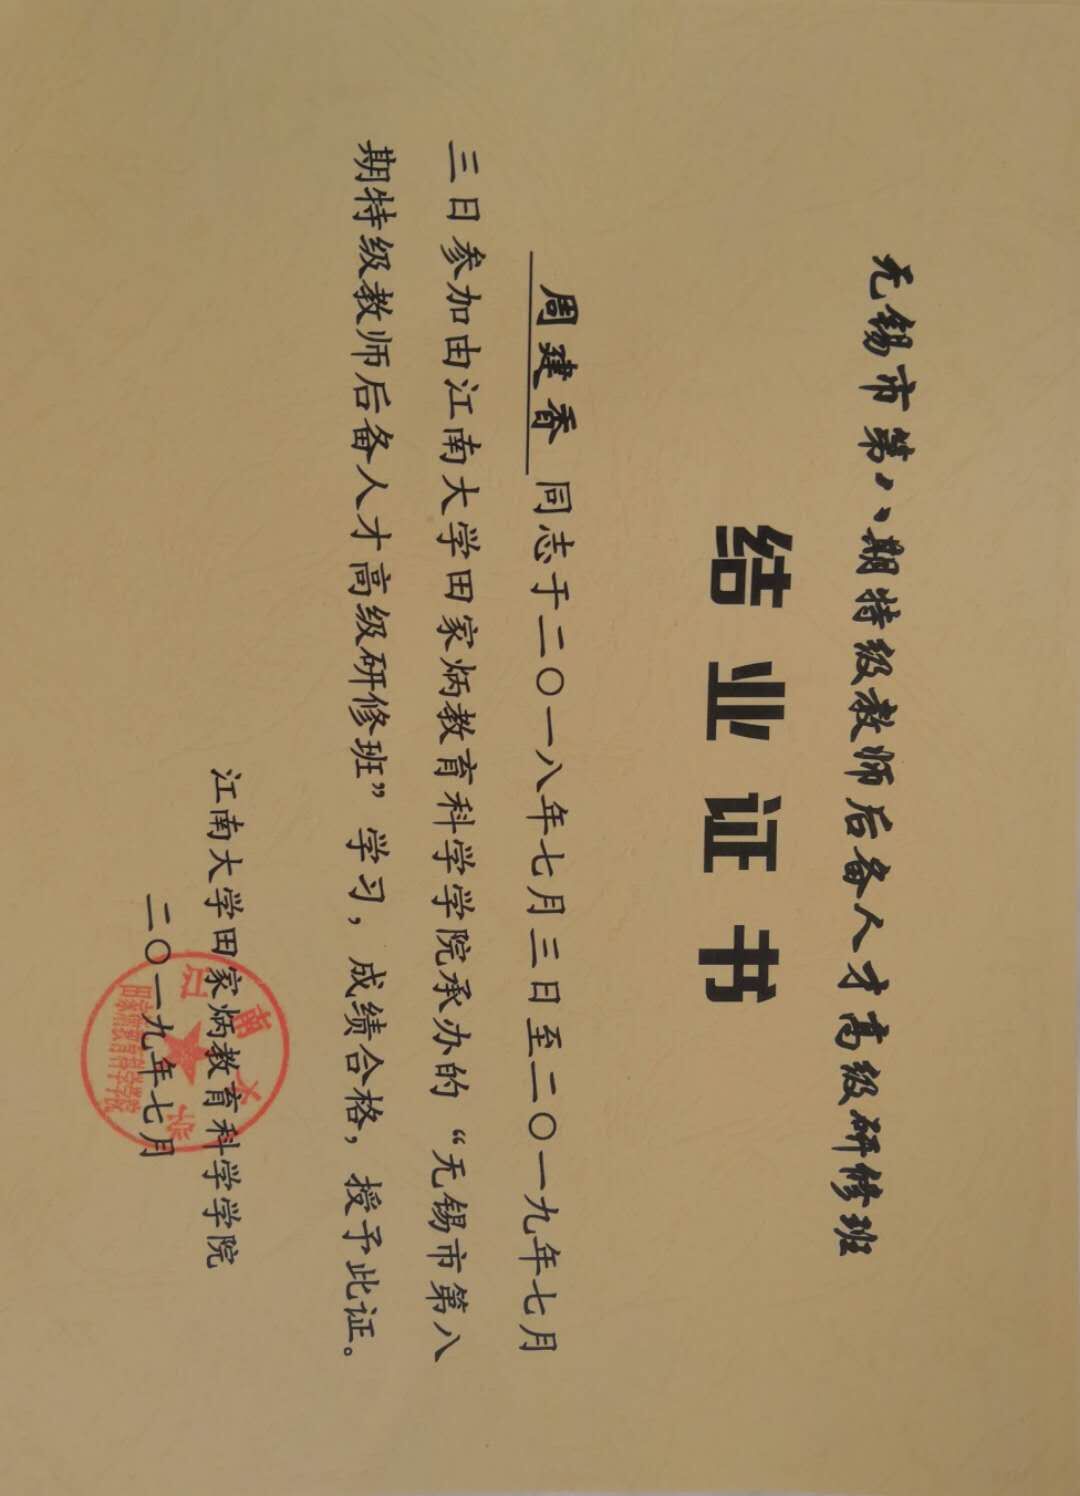 无锡市第八期特级教师后备人才高级研修班
结业证书
周建香 同志于二〇一八年七月三日至二〇一九年七月
三日参加由江南大学田家炳教育科学学院承办的“无锡市第八
期特级教师后备人才高级研修班”学习，成绩合格，授予此证。
江南大学田家炳教育科学学院
二〇一九年七月
江南大学
田家炳教育科学学院